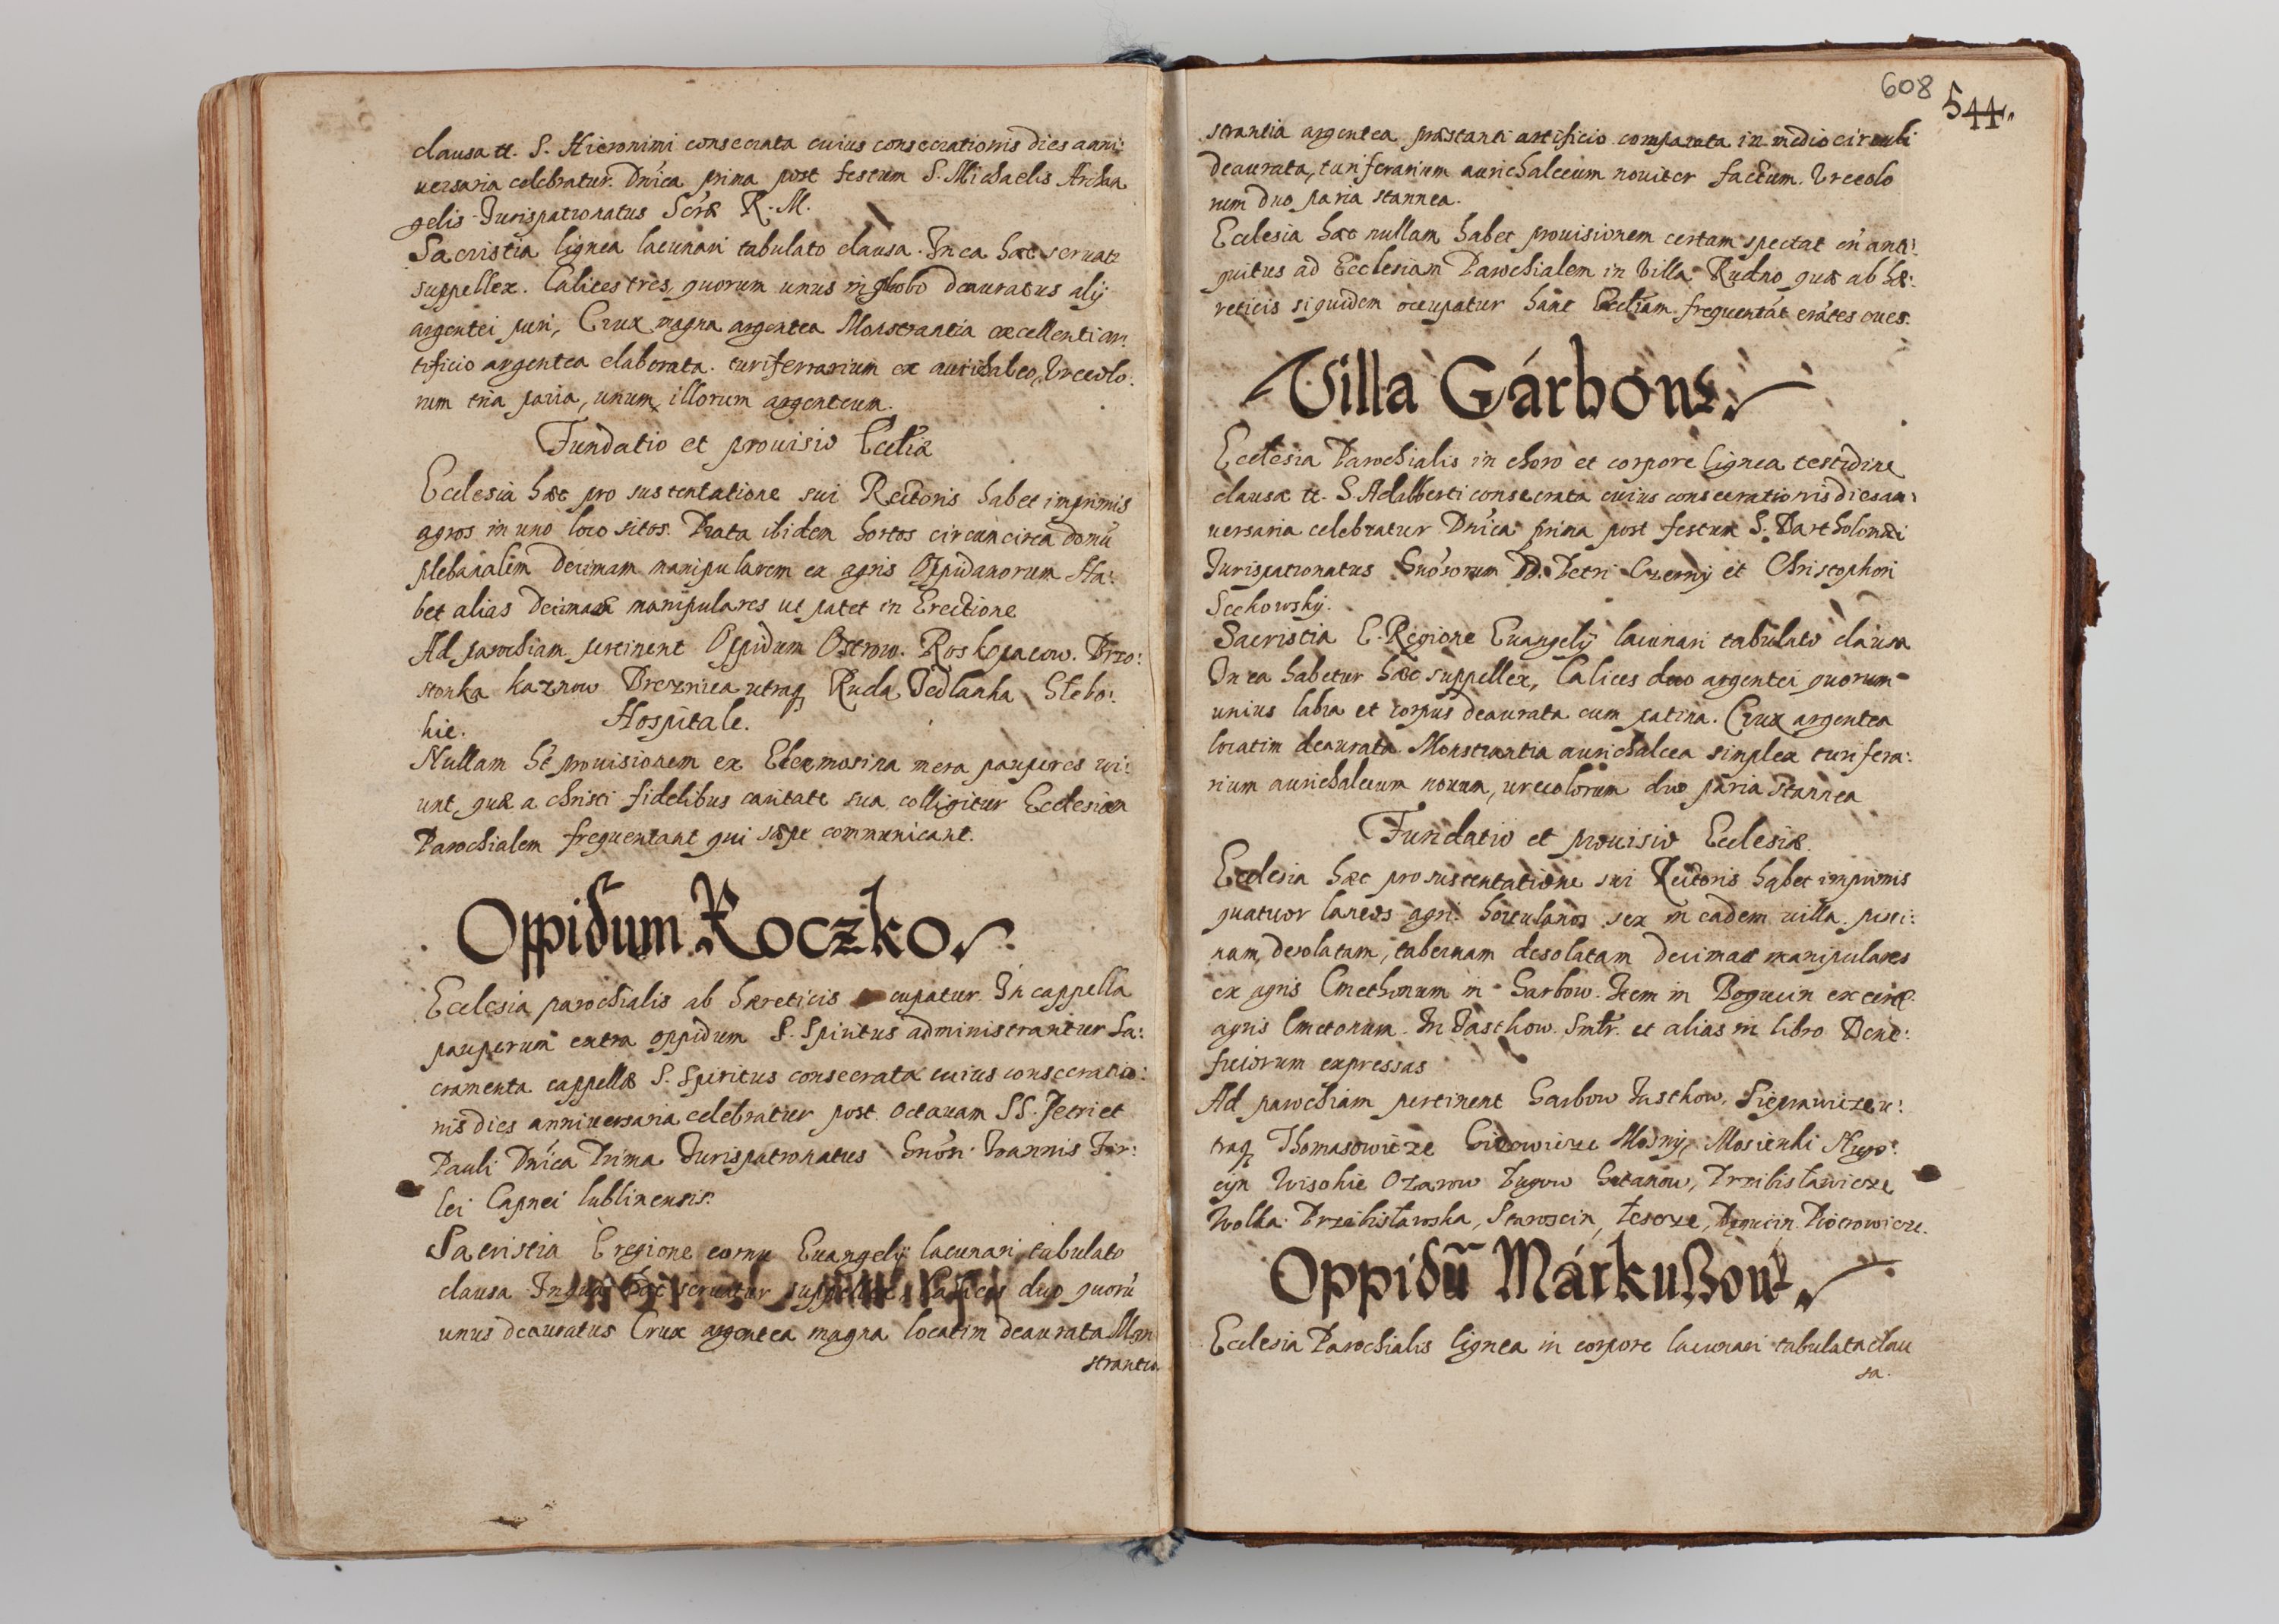 clausa tt. S. Hieronimi consecrata cuius consecrationis dies anni:
uersaria celebratur. Dnica prima post festum S. Michaelis Archan
gelis. Jurispatronatus Scræ R. M.
Sacristia lignea lacunari tabulato clausa. In ea hæc seruatr
suppellex. Calices tres, quorum unus in globo deauratus alij
argentei puri, Crux magna argentea Monstrantia excellenti ar:
tificio argentea elaborata. turiferrarium ex aurichalco, Vrceolo:
rum tria paria, unum illorum argenteum.
Fundatio et prouisio Eccliæ
Ecclesia hæc pro sustentatione sui Rectoris habet imprimis
agros in uno loco sitos. Prata ibidem hortos circumcirca domu
plebanalem Decimam manipularem ex agris Oppidanorum Ha:
bet alias Decimas manipulares ut patet in Erectione
Ad parochiam pertinent Oppidum Ostrow. Roskopacow. Brzo:
stowka kaznow Breznica utraq Ruda Jedlanka Glebo:
kie. Hospitale.
Nullam ht prouisionem ex Elexmosina mera pauperes ui:
unt, quæ a christi fidelibus caritate sua colligitur Ecclesiam
Parochialem frequentant qui sæpe communicant.
Oppidum Koczko
Ecclesia parochialis ab hæreticis cupatur. In cappella
pauperum extra oppidum S. Spiritus administrantur Sa:
cramenta cappella S. Spiritus consecrata cuius consecratio:
nis dies anniuersaria celebratur post Octauam SS. Petri et
Pauli Dnica Prima Jurispatronatus Gnosi Joannis Fir:
lei Capnei lublinensis.
Sacristia E regione cornu Euangelij lacunari tabulato
clausa In qua hæc seruatur suppellex, Calices duo quoru
unus deauratus Crux argentea magna locatim deaurata Mon
strantia
608
544
strantia argentea præstanti artificio comparata in medio circuli
deaurata, turiferarium aurichalceum nouiter factum. Vrceolo
rum duo paria stannea.
Ecclesia hæc nullam habet prouisionem certam spectat en anti:
quitus ad Ecclesiam Parochialem in Villa Rudno quæ ab hæ:
reticis siquidem occupatur hanc Eccliam frequentat erates oues.
Villa Gárbow
Ecclesia Parochialis in choro et corpore lignea testidine
clausa tt. S. Adalberti consecrata cuius consecrationis dies an:
uersaria celebratur Dnica prima post festum S. Bartholomæi
Jurispatronatus Gnosorum DD. Petri Czernÿ et Christophori
Sechowskÿ.
Sacristia E. Regione Euangelÿ lacunari tabulato clausa
In ea habetur hæc suppellex, Calices duo argentei quorum
unius labia et corpus deaurata cum patina. Crux argentea
locatim deaurata Monstrantia aurichalcea simplex turifera:
rium aurichalceum nouum, urceolorum duo paria stannea
Fundatio et prouisio Ecclesiæ.
Ecclesia hæc pro sustentatione sui Rectoris habet imprimis
quatuor laneos agri. hortulanos sex in eadem uilla. pisci:
nam desolatam, tabernam desolatam decimas manipulares
ex agris Cmethonum in Garbow. Item in Bogucin ex
agris Cmetonum. In Jasthow. Smlr. et alias in libro Bene:
ficiorum expressas
Ad parochiam pertinent Garbow Jasthow, Sieprawicze u:
traq Thomasowicze Moszny, Mosienki
Wisokie Ozarow Lugow Gutanow, Przibislawicze
Wolka Przibislawska, Staroscin, Lescze, Bogucin Piotrowicze.
Oppidu Márkuszow
Ecclesia Parochialis lignea in corpore lacunari tabulata clau
sa.